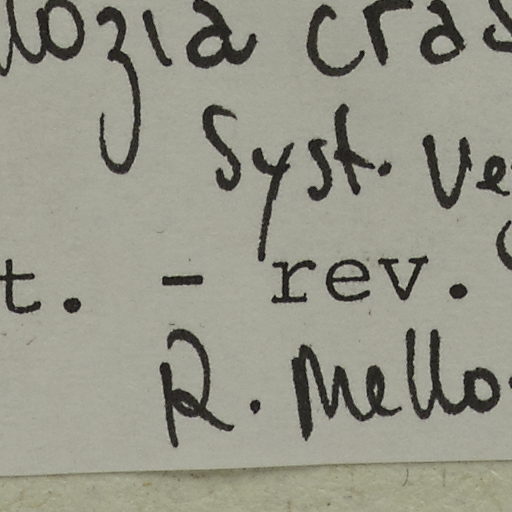 lozia cras
Syst. Ve
t. - rev.
R. Mello-